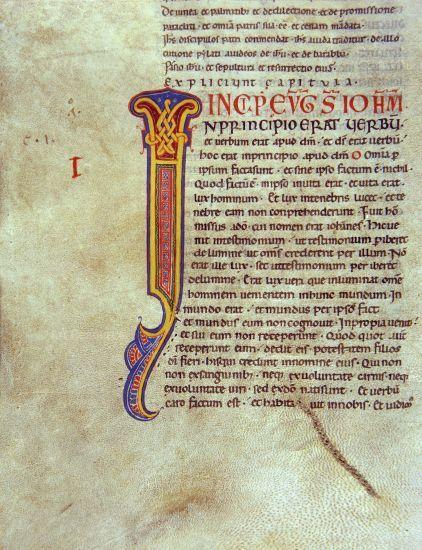 De uinea et palmitib; et de dilectione et de promissione
paracliti · et omnia patris sua ee · et celum mandata ·
Ihs discipulos patri commendat · Ihs iuda traditur · de allo
cutione pylati ad iudeos de ihu · et de baraban ·
Passio ihu · et sepultura et resurrectio eius ·
Expliciunt capitula ·
INCP EVG S IOHM
IN PRINCIPIO ERAT VERBV ·
et uerbum erat apud dm · et ds erat uerbu
hoc erat in principio apud dm · Omia p
ipsum facta sunt · et sine ipso factum e nichil ·
Quod factu e in ipso uita erat · et uita erat
lux hominum · Et lux in tenebris lucet · et te
nebre eam non conprehenderunt · Fuit hom
missus a do · cui nomen erat iohanes · Hic ue
nit in testimonium · ut testimonium phiberet
de lumine · ut oms crederent per illum · No
erat ille lux · set ut testimonium per iberet
de lumine · Erat lux uera que inluminat ome
hominem uenientem in hunc mundum · In
mundo erat · et mundus per ipsu fact
et mundus eum non cognouit · In propia uenit
et sui eum non receperunt · Quod quot aut
receperunt eum · dedit eis potestatem filios
di fieri · his qui credunt in nomine eius · Qui non
non ex sanguinib; · neq; ex uoluntate carnis · neq;
ex uoluntate uiri · sed ex do nati sunt · Et uerbu
caro factum est · et habita uit in nobis · Et uidim
I